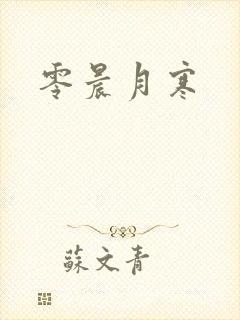 零晨月寒
蘇文青